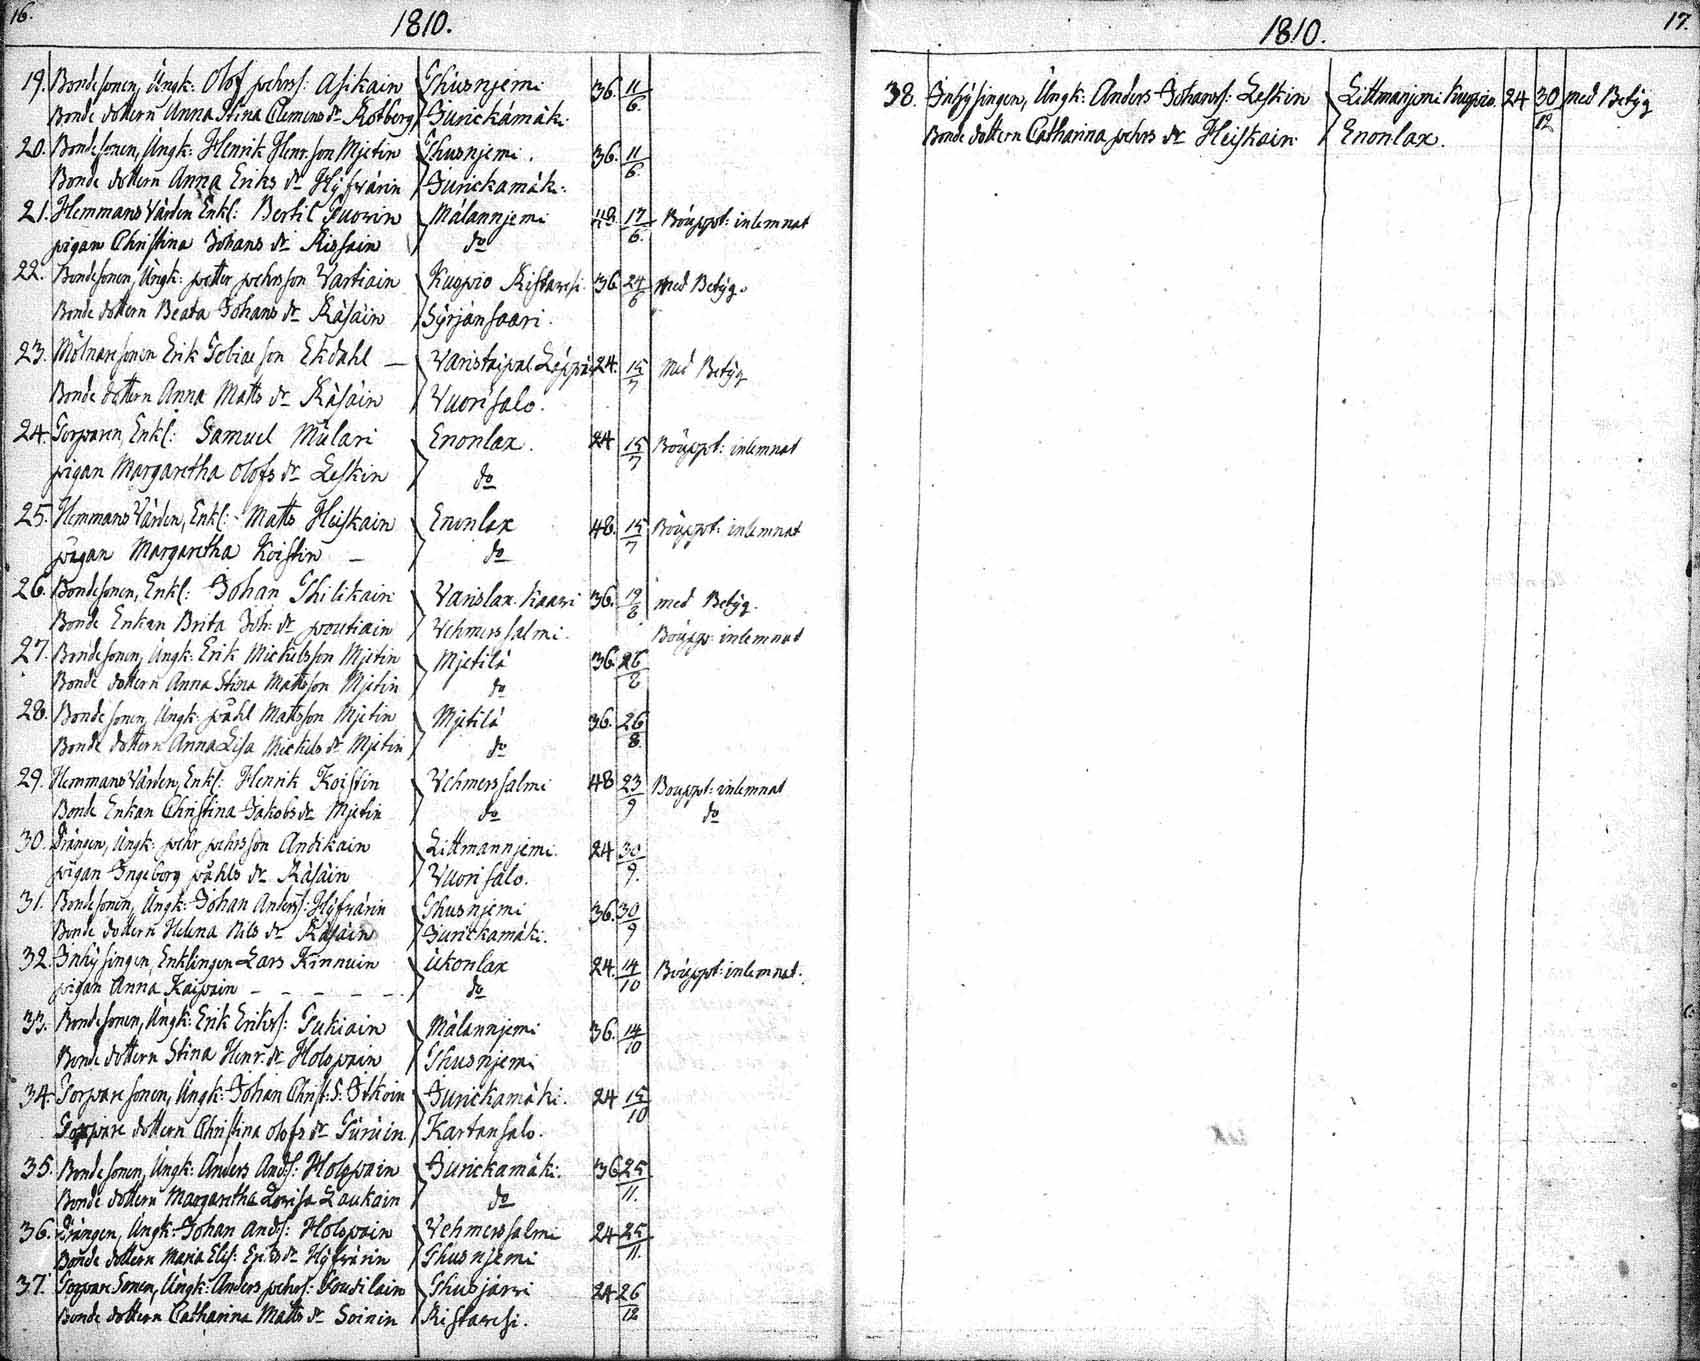 16.
1810.
19. Bondesonen, Ungk: Olof pehrss: Asikain Thusnjemi 36. 11/6.
Bonde dottern Anna Stina Clemens dr Rotberg Jurickamäki.
20. Bondesonen, Ungk: Henrik Henr: son Mjetin Thusnjemi. 36. 11/6.
Bonde dottern Anna Eriks dr Hyfvärin Jurickamäki.
21. Hemmans Värden Enkl: Bertil Tuovin Målannjemi 48 17/6. Böuppt: inlemnat
pigan Christina Johans dr Rissain do
22. Bondesonen, Ungk: petter pehrsson Vartiain Kuopio Ristavesi 36. 24/6 Med Betyg.
Bonde dottern Beata Johans dr Räsäin Syrjänsaari.
23. Mölnaresonen Erik Tobiae son Ekdahl — 24. 15/7 Med Betyg
Bonde dottern Anna Matts dr Räsäin Vuorisalo.
24. Torparen, Enkl: Samuel Mülari Enonlax. 24 15/7 Böuppt: inlemnat
pigan Margaretha Olofs dr Leskin do
25. Hemmans Värden, Enkl: Matts Heiskain Enonlax 48. 15/7 Böuppt: inlemnat
pigan Margaretha Koistin — do
26. Bondesonen, Enkl: Johan Thilikain Varislax. Kaavi 36. 19/8 med Betyg.
Bonde Enkan Brita Joh: dr poutiain Vehmerssalmi. Böuppt: inlemnat
27. Bondesonen, Ungk: Erik Mickelsson Mjetin Mjetilä 36. 26/8
Bonde dottern Anna Stina Mattsson Mjetin do
28. Bondesonen, Ungk: påhl Mattsson Mjetin Mjetilä 36. 26/8.
Bonde dottern Anna Lisa Mickels dr Mjetin do
29. Hemmans Värden, Enkl: Henrik Koistin Vehmerssalmi 48 23/9 Bouppt: inlemnat
Bonde Enkan Christina Jakobs dr Mjetin do do
30. Drängen, Ungk: pehr pehrsson Andikain Littmannjemi. 24 30/9.
pigan Ingeborg påhls dr Räsäin Vuorisalo.
31. Bondesonen, Ungk: Johan Anderss: Hyfvärin Thusnjemi 36. 30/9
Bonde dottern Helena Nils dr Räsäin Jurickamäki.
32. Inhysingen, Enklingen Lars Kinnuin Ukonlax 24. 14/10 Böuppt: inlemnat.
pigan Anna Kaipain - - - - - do
33. Bondesonen, Ungk: Erik Erikss: Tukiain Målannjemi 36. 14/10
Bonde dottern Stina Henr: dr Holopain Thusnjemi
34. Torparesonen, Ungk: Johan Christ: S: Itkoin Jurickamäki. 24 15/10
Torpare dottern Christina olofs dr Türüin Kartansalo.
35. Bondesonen, Ungk: Anders Ands: Holopain Jurickamäki. 36 25/11.
Bonde dottern Margaretha Lovisa Laukain do
36. Drängen, Ungk: Johan Ands: Holopain Vehmerssalmi 24 25/11.
Bonde dottern Maria Elis: Eriks dr Hyfvärin Thusnjemi
37. Torpare Sonen, Ungk: Anders pehrs: Thusjärvi 24 26/12
Bonde dottern Catharina Matts dr Soinin Ristavesi.
17.
1810.
38. Inhysingen, Ungk: Anders Johanss: Leskin Littmanjemi Kuopio. 24 30/12 med Betyg
Bonde dottern Catharina pehrs dr Heiskain Enonlax.